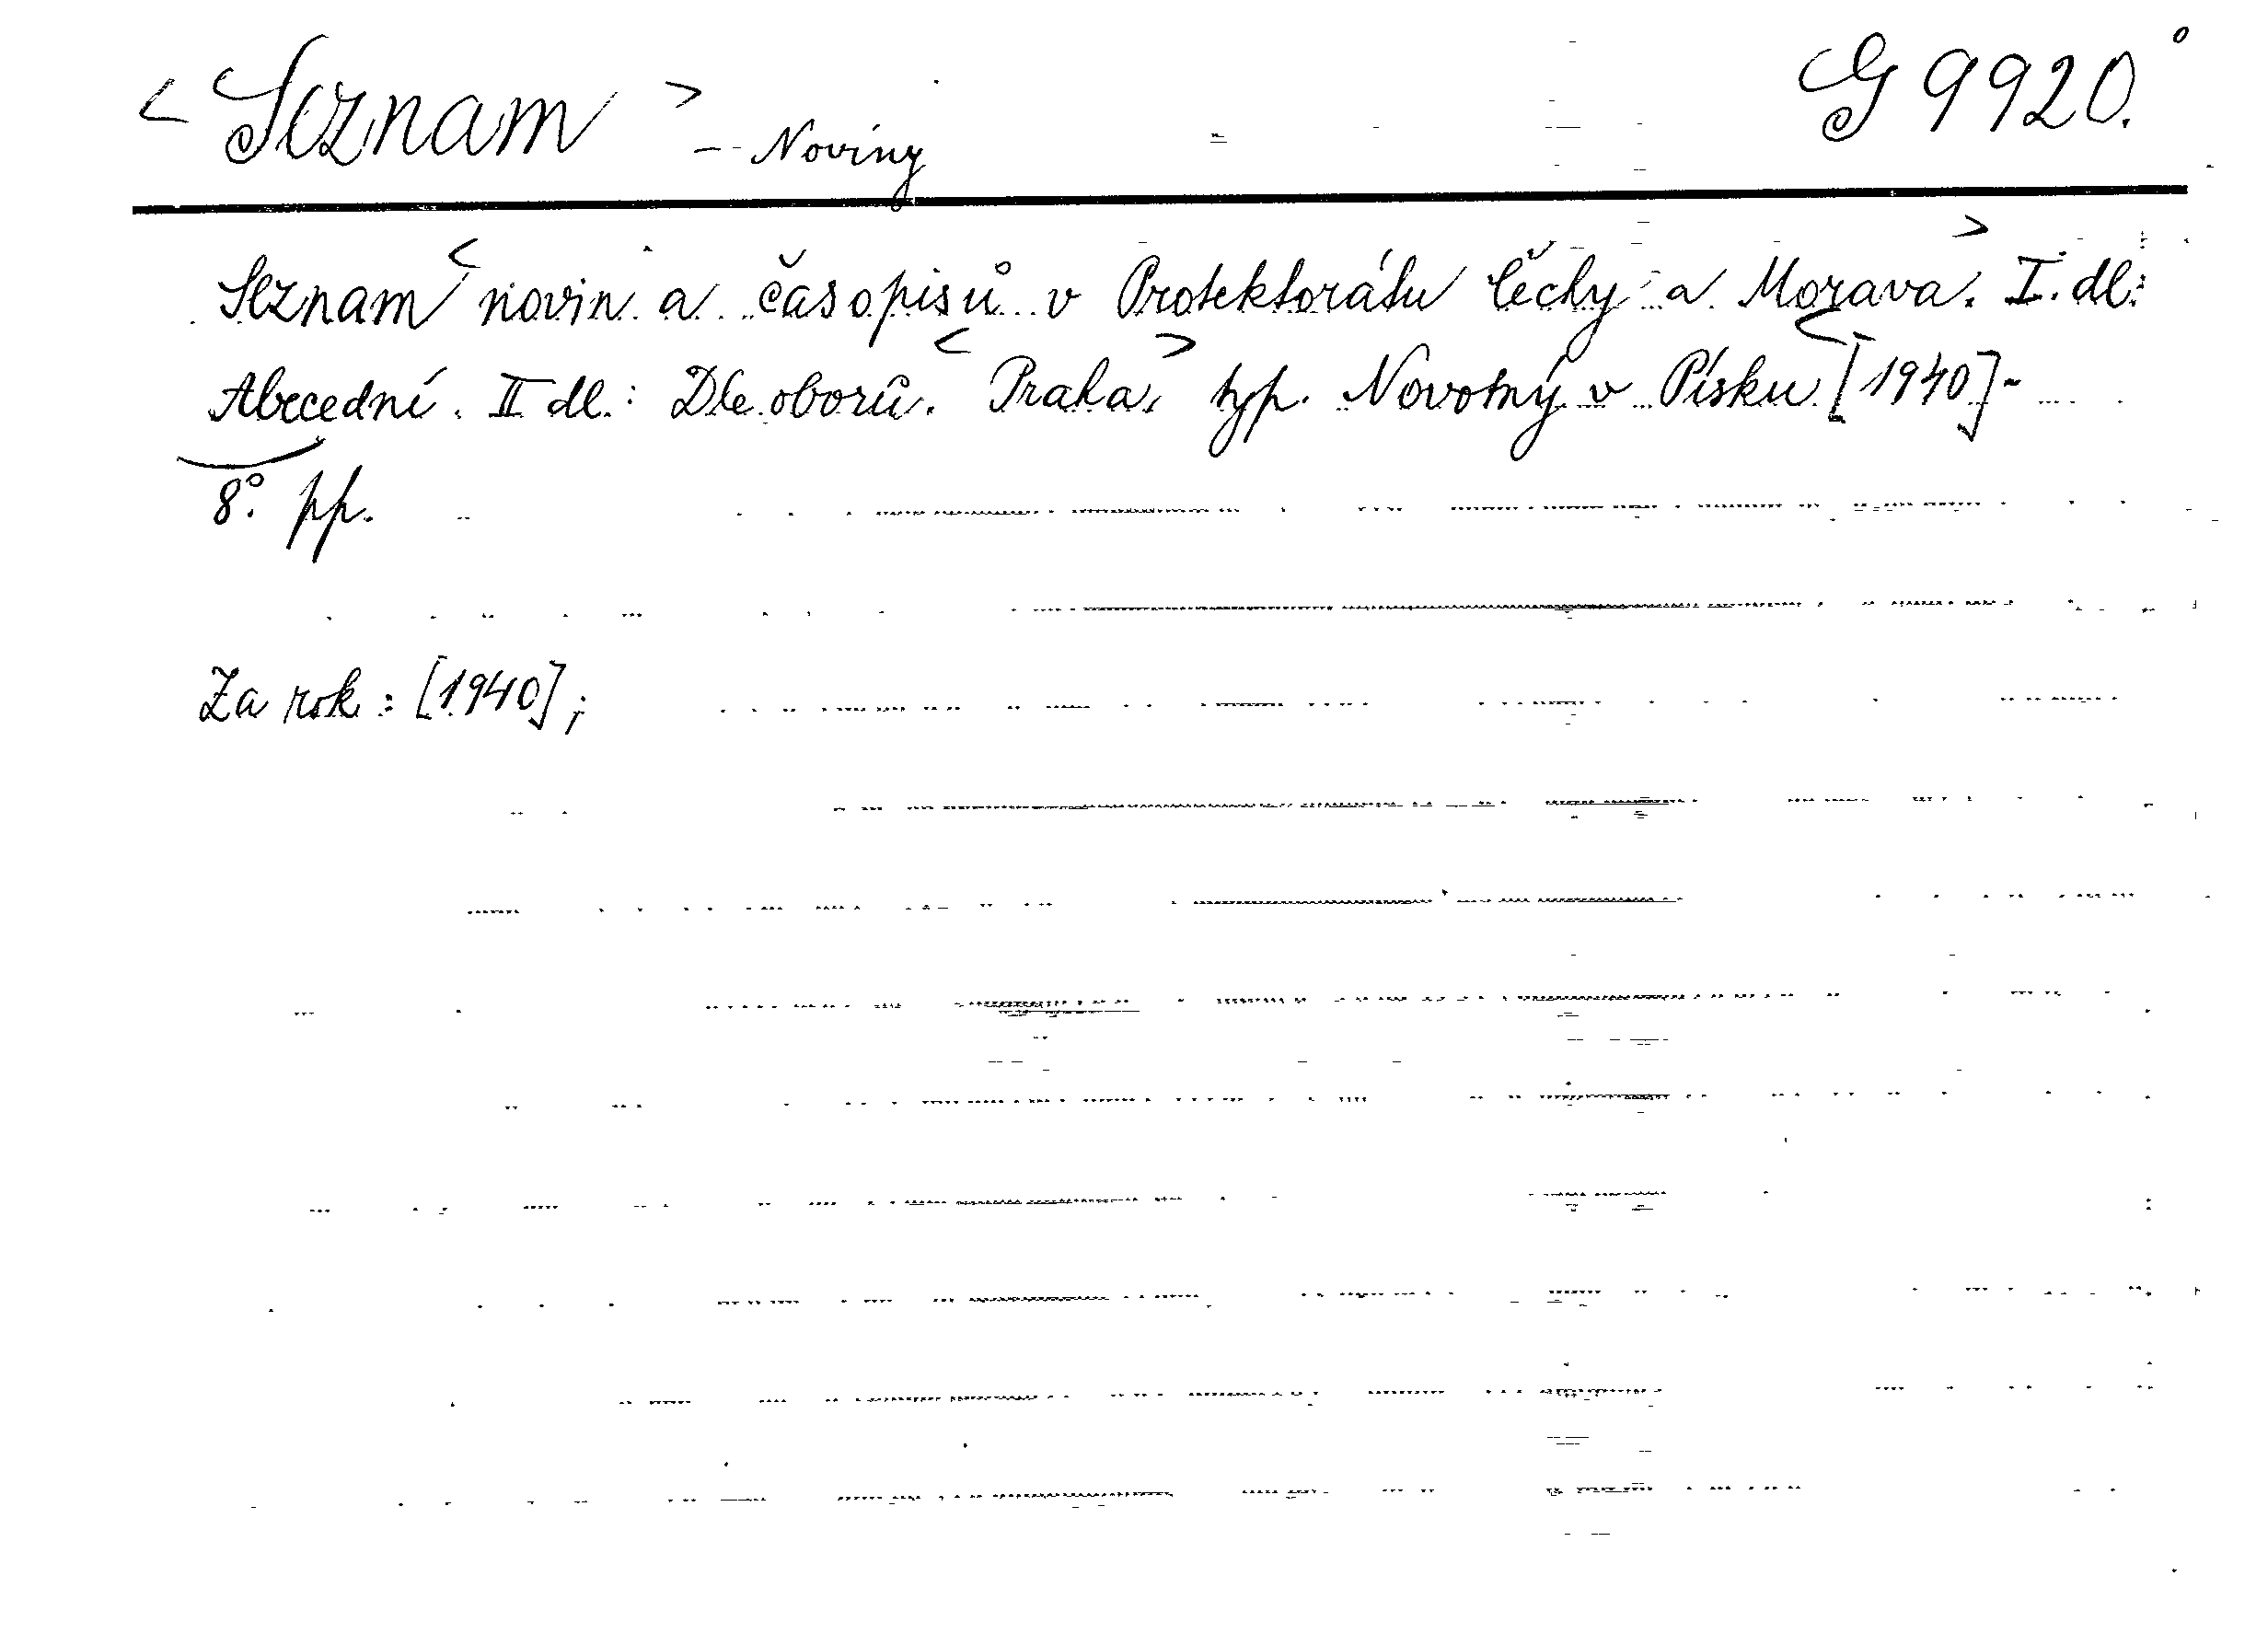 < Seznam > - Noviny G 9920.°
Seznam < novin a časopisů v Protektorátu Čechy a Morava. > I. dl:
Abecední. II dl.: Dle oborů. < Praha, > typ. Novotný v Písku < [1940]-
8°. pp.
Za rok: [1940];